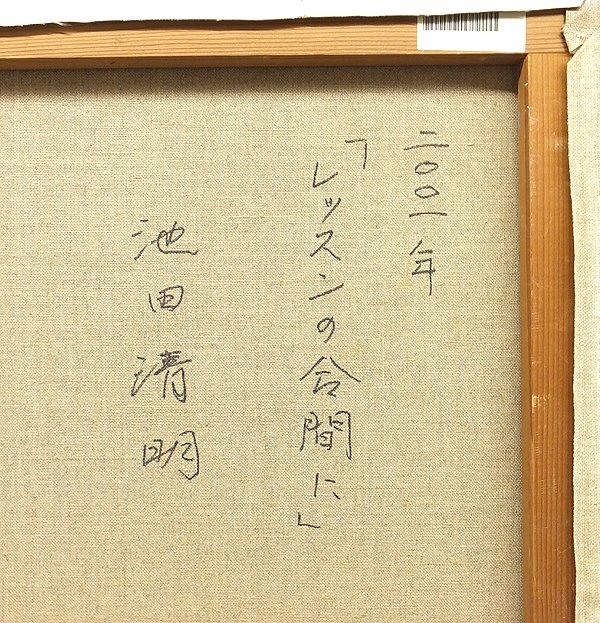 二〇〇一年
「レッスンの合間に」
池田清明